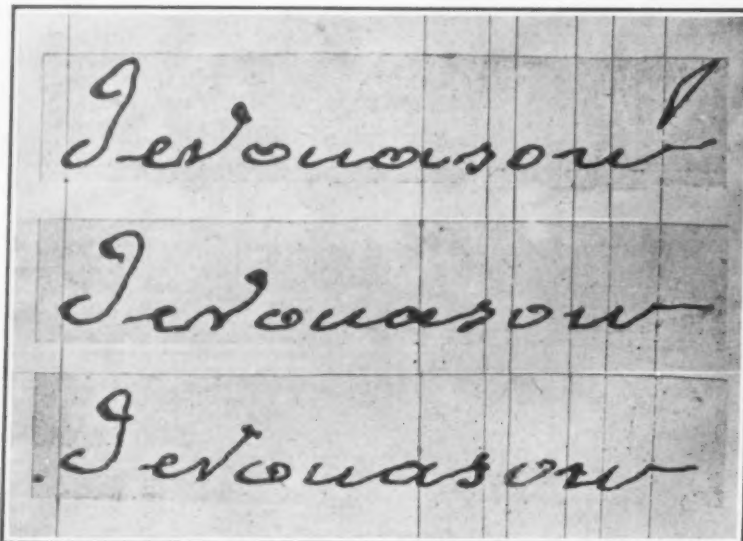 Jevouasow
Jevouasow
Jevouasow